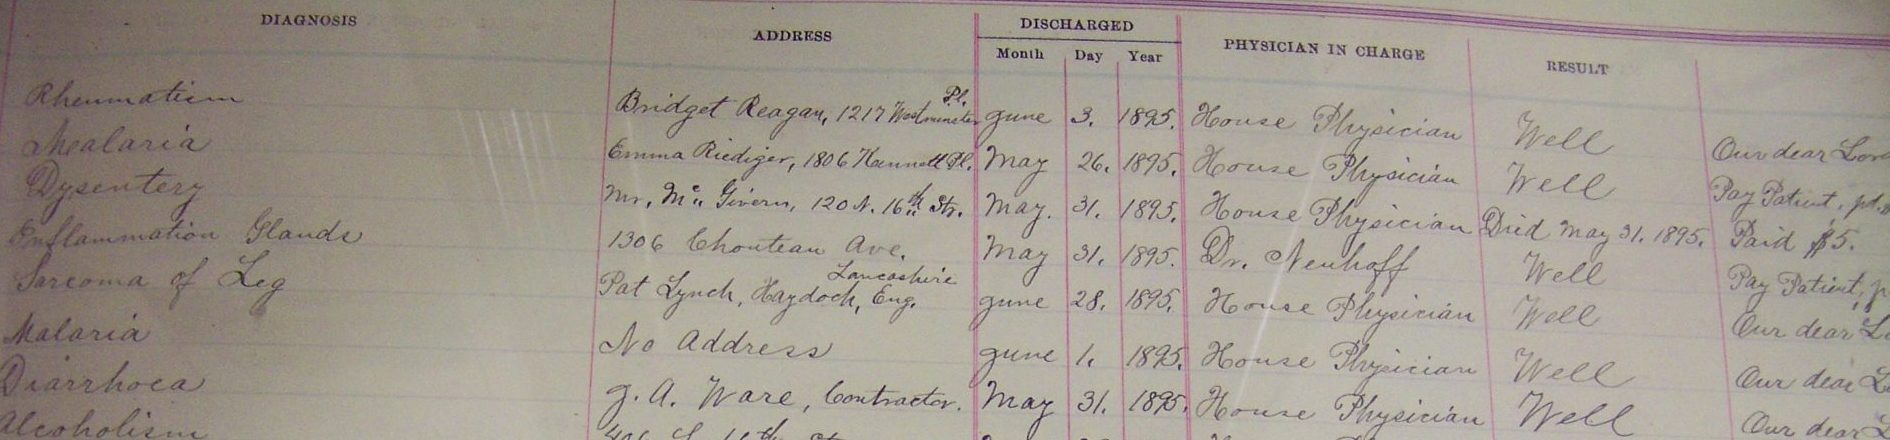 DIAGNOSIS ADDRESS DISCHARGED PHYSICIAN IN CHARGE RESULT
Month Day Year
Rheumatism Bridget Reagan, 1217 Westminster Pl. June 3. 1895. House Physician Well Our dear Lord
Malaria Emma Riediger, 1806 Kennett Pl. May 26. 1895. House Physician Well Pay Patient, pt.
Dysentery Mr. Mc Givern, 120 N. 16th Str. May. 31. 1895. House Physician Died May 31. 1895. Paid $5.
Inflammation Glands 1306 Chouteau Ave. May 31. 1895. Dr. Neuhoff Well Pay Patient, p
Sarcoma of Leg Pat Lynch, Haydock, Lancashire Eng. June 28. 1895. House Physician Well Our dear L
Malaria No Address June 1. 1895. House Physician Well Our dear L
Diarrhoea J. A. Ware, Contractor. May 31. 1895. House Physician Well Our dear
Alcoholism